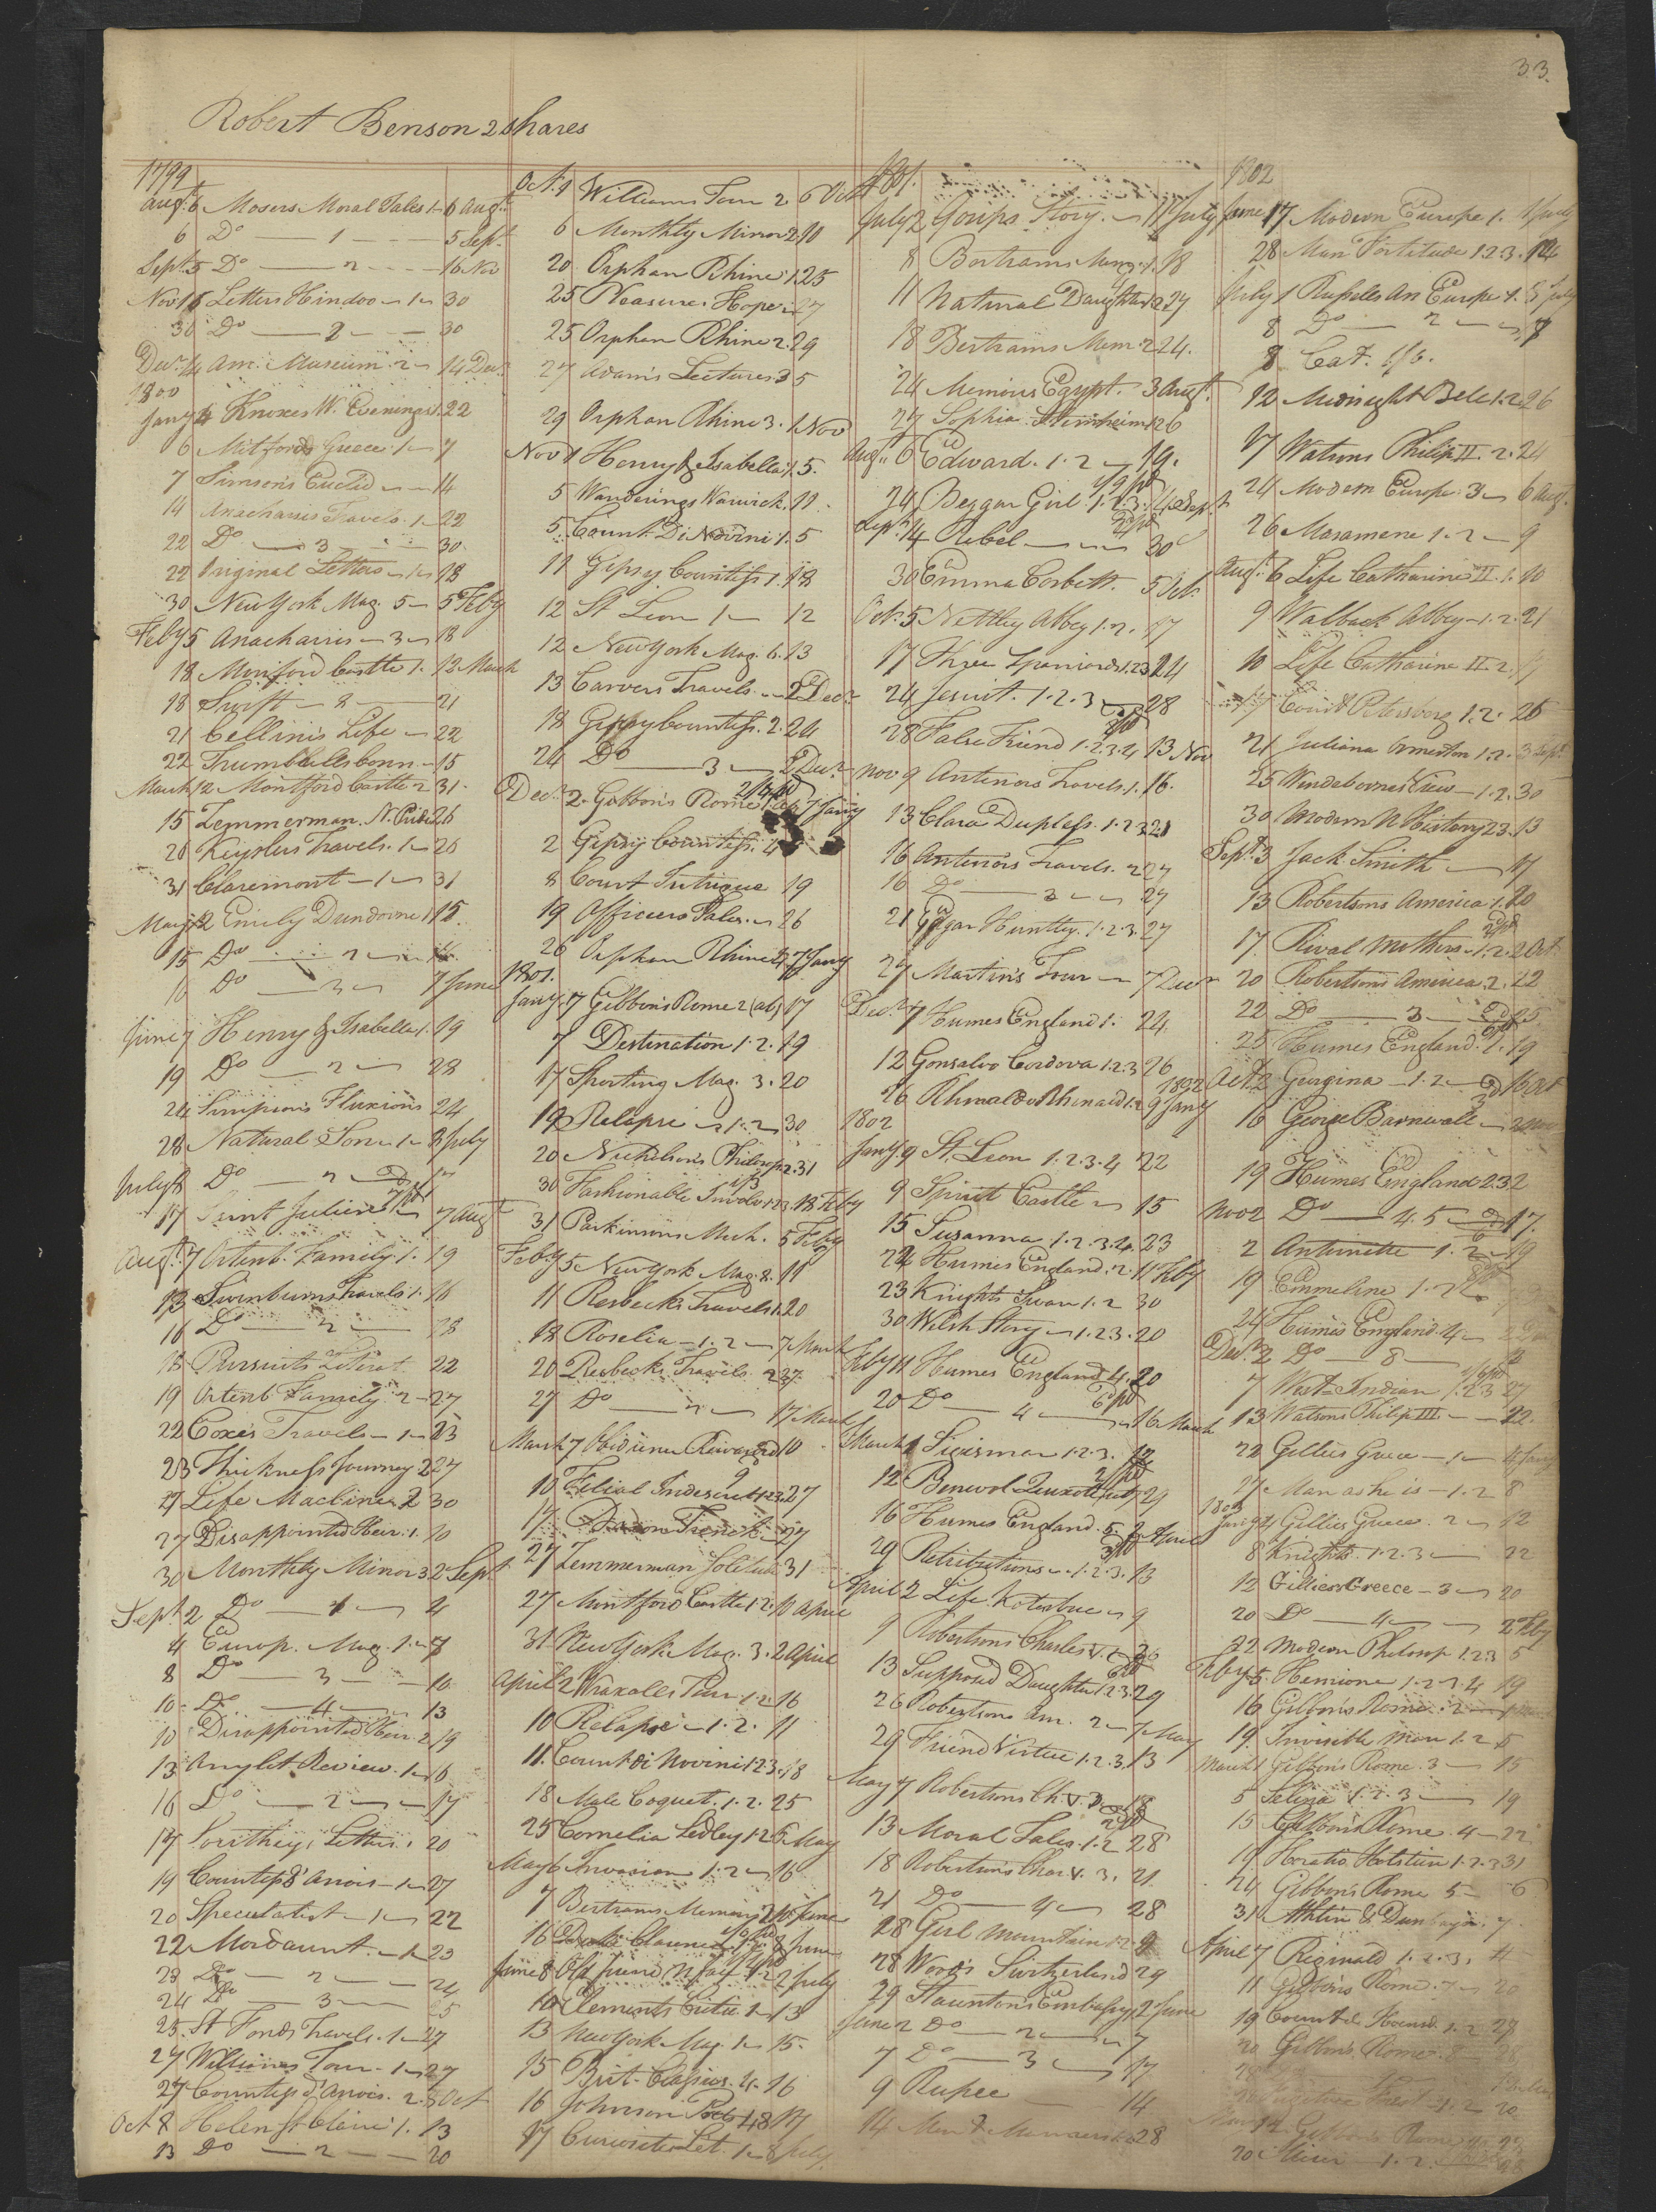 33.
Robert Benson 2 shares
1799
Augt. 6 Mosers Moral Tales 1 6 Augt
6 Do 1 5 Sept
Sept 5 Do 2 16 Nov
Nov 16 Letters Hindoo 1 30
30 Do 2 30
Decr 14 Am. Museum 2 14 Decr
1800
Jany 4 Knoxes W. Evenings 1. 22
6 Mitfords Greece 1 7
7 Simson's Euclid 14
14 Anacharsis Travels 1 22
22 Do 3 30
22 Original Letters 1 28
30 New York Mag. 5 5 Feby
Feby 5 Anacharsis 3 18
18 Montford Castle 1. 12 March
18 Swift 2 21
21 Cellinis Life 22
22 Trumbulls Conn. 15
March 12 Montford Castle 2 31
15 Zemmerman N. Pride 26
26 Keyslers Travels. 1 26
31 Claremont 1 31
May 12 Emily Dundorne 1 15
15 Do 2 16
16 Do 3 7 June
June 7 Henry & Isabella 1. 19
19 Do 2 28
24 Simpson's Fluxions 24
28 Natural Son 1 8 July
July 8 Do 2 17
17 Saint Julien 7 Augt
Augt. 7 Ortenb. Family 1. 19
13 Swinburns Travels 1. 16
16 Do 2 28
18 Pursuits Literat. 22
19 Ortenb Family 2 27
22 Coxes Travels 1 23
23 Thickness Journey 2 27
27 Life Machines 2 30
27 Disappointed Heir. 1. 10
30 Monthly Mirror 3 2 Sept
Sept 2 Do 4 4
4 Europ. Mag. 1. 8
8 Do 3 10
10 Do 4 13
10 Disappointed Heir 2 19
13 Anylet Review. 1 16
16 Do 2 17
17 Southey's Letters 20
19 Countess d'Anois 1 27
20 Speculatist 1 22
22 Mordaunt. 1. 23
23 Do 2 24
24 Do 3 25
25 St Fonds Travels. 1 27
27 Williams Tour 1 27
27 Countess d'Anois. 2. 8 Oct
Oct 8 Helen St Claire 1. 13
13 Do 2 20
Oct. 1 Williams Tour 2 6 Oct
6 Monthly Mirror 2. 10
20 Orphan Rhine 1. 25
25 Pleasures Hope 27
25 Orphan Rhine 2. 29
27 Adam's Lectures 3 5
29 Orphan Rhine 3. 1 Nov
Nov 1 Henry & Isabella 1. 5.
5 Wanderings Warwick. 11
5 Count Di Novini 1. 5
11 Gipsey Countess 1. 18
12 St Leon 1 12
12 New York Mag. 6. 13
13 Carvers Travels 2 Decr
18 Gipsy Countess. 2. 24
24 Do 3 2 Decr
Decr. 2 Gibbon's Rome 1 (ab) 7 Jany
2 Gipsy Countess. 4
8 Court Intrigue 19
19 Officers Tales 26
26 Orphan Rhine 4 7 Jany
1801.
Jany. 7 Gibbon's Rome 2 (ab) 17
7 Destination 1. 2. 19
17 Sporting Mag. 3. 20
19 Relapse 1. 2 30
20 Nicholson's Philosop 2. 31
30 Fashionable Involv. 1.2.3. 18 Feby
31 Parkinson's Mech. 5 Feby
Feby 5 New York Mag. 2. 11
11 Resbecks Travels 1. 20
18 Roselia 1. 2 7 March
20 Resbecks Travels 2 27.
27 Do 17 March
March 7 Obidience Rewarded 10
10 Filial Indiscret 1.2.3. 27
17 Baron Trenck 27
27 Zemmerman Solitude 31
27 Montford Castle 1. 2. 10 April
31 New York Mag. 3. 2 April
April 2 Wraxalls Tour 1. 2 16
10 Relapse 1. 2. 11
11. Count di Novini 1 2 3. 18
18 Male Coquet. 1. 2. 25
25 Cornelia Sedley 1 2 6 May
May 6 Invasion 1. 2 16
7 Bertrams Memoirs 2 16 June
16 Clarence 8 June
June 8 Old Friend 2 July
10 Elements Critic 1 13
13 New York Mag. 1 15.
15 Brit. Classics. 4. 16
16 Johnson Poets 48 17
17 Curiosities Lit. 1 8 July
1801.
July 2 Gossips Story. 11 July
8 Bertrams Mem. 1. 18
11 Natural Daughter 2 27
18 Bertrams Mem. 2 24.
24 Memoirs Egypt. 3 Augt.
27 Sophia Sternheim 1 26
Augt. 6 Edward. 1. 2 19.
24 Beggar Girl 1. 2. 3. 14 Sept
Sept 14 Rebel 30
30 Emma Corbett. 5 Oct
Oct. 5 Nettley Abbey 1. 2. 17
17 Three Spaniards 1.2.3 24
24 Jesuit. 1. 2. 3 28
28 False Friend 1. 2. 3. 4 13 Nov
Nov 9 Antenors Travels. 1. 16.
13 Clara Dupless. 1. 2 3 21
16 Antenors Travels. 2 27
16 Do 3 27
21 Edgar Huntley. 1. 2. 3. 27
27 Martins Tour 7 Decr
Decr 7 Humes England 1. 24.
12 Gonsalvo Cordova 1. 2. 3 26
26 Rhinaldo Rhinardi 1. 2 9 Jany 1802
1802
Jany. 9 St. Leon 1. 2. 3. 4 22
9 Spirit Castle 15
15 Susanna. 1. 2. 3. 4. 23
22 Humes England. 2. 11 Feby
23 Knights Swan 1. 2 30
30 Welsh Story 1. 2. 3. 20
Feby 11 Humes England 4. 20
20 Do 4 16 March
March 1 Sicisman 1. 2. 3. 12
12 Benevol Quixote 29
16 Humes England. 5. 2 April
29 Retributions 1. 2. 3. 13
April 2 Life Kotzebue 9
9 Robertsons Charles V. 1 26
13 Supposed Daughter 1.2.3. 29
26 Robertsons Am. 2 7 May
29 Friend Virtue 1. 2. 3. 13
May 7 Robertsons Ch. V. 2. 18
13 Moral Tales. 1. 2 28
18 Robertson's Char. V. 3. 21.
21 Do 4 28
28 Girl Mountain 1 2. 9
28 Wood's Switzerland 29
29 Staunton's Embassy 1 2 June
June 2 Do 2 7
7 Do 3 17
9 Rupee 14
14 Men & Manners 28
1802
June 17 Modern Europe 1. 1 July
28 Man Fortitude 1. 2. 3. 12
July 1 Russells An Europe 1. 8 July
8 Do 2 7
8 Cat. 1/6.
12 Midnight Bell 1. 2 26
17 Watsons Philip II. 2. 24
24 Modern Europe 3 6 Augt.
26 Masamene 1. 2 9
Augt. 6 Life Catharine II. 1. 10
9 Walback Abbey 1. 2. 21
10 Life Catharine II. 2. 17
17 Court Petersburg 1. 2. 26
21 Juliana Ormeston 1. 2. 3 Sept
25 Windebornes View 1. 2. 30
30 Modern N History 23. 13
Sept. 3 Jack Smith 17
13 Robertsons America 1. 20
17. Rival Mothers 1. 2. 2 Oct
20 Robertsons America. 2. 22
22 Do 3 25
25 Humes England. 1. 19
Oct. 2 Georgina 1. 2 16 Oct
16 George Barnwall 2 Nov
19 Humes England 2 3 2
Nov 2 Do 4. 5 17.
2 Antoinette 1. 2 19
19 Emmeline 1. 2
24 Humes England. 4
Decr 2 Do 8
7 West Indian 1. 2. 3 27
13 Watsons Philip III. 22.
22 Gillies Greece 1 4 Jany
27 Man as he is 1. 2 8
1803
Jany 4 Gillies Greece. 2 12
8 Knights 1. 2. 3 22
12 Gillies Greece 3 20
20 Do 4 2 Feby
22 Modern Philosop 1. 2. 3 5
Feby 5. Hermione 1. 2. 3. 4 19
16 Gibbon's Rome. 2
19. Invisible Man 1. 2 5
March 1 Gibbons Rome. 3 15
5 Selina 1. 2. 3 19
15 Gibbon's Rome. 4 22
19 Horatio Holstein 1. 2. 3 31
24 Gibbon's Rome 5 6
31 Athlin & Dunbayn. 7
April 7 Reginald 1. 2. 3.
11 Gibbon's Rome. 7 20
19 Count 1. 2 27
20 Gibbons Rome. 8 28
Gibbons Rome
20 Miser 1. 2.